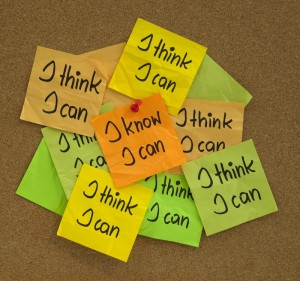 I think
I can
I think
I can
I know
I can
I think
I can
I think
I can
I think
I can
I think
I can
I think
I can